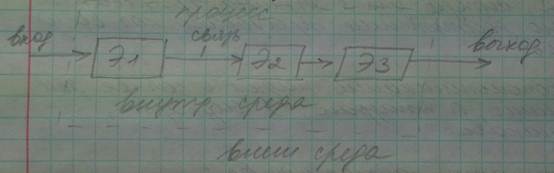 процесс
вход
связь
выход
Э1
Э2
Э3
внутр. среда
внеш среда